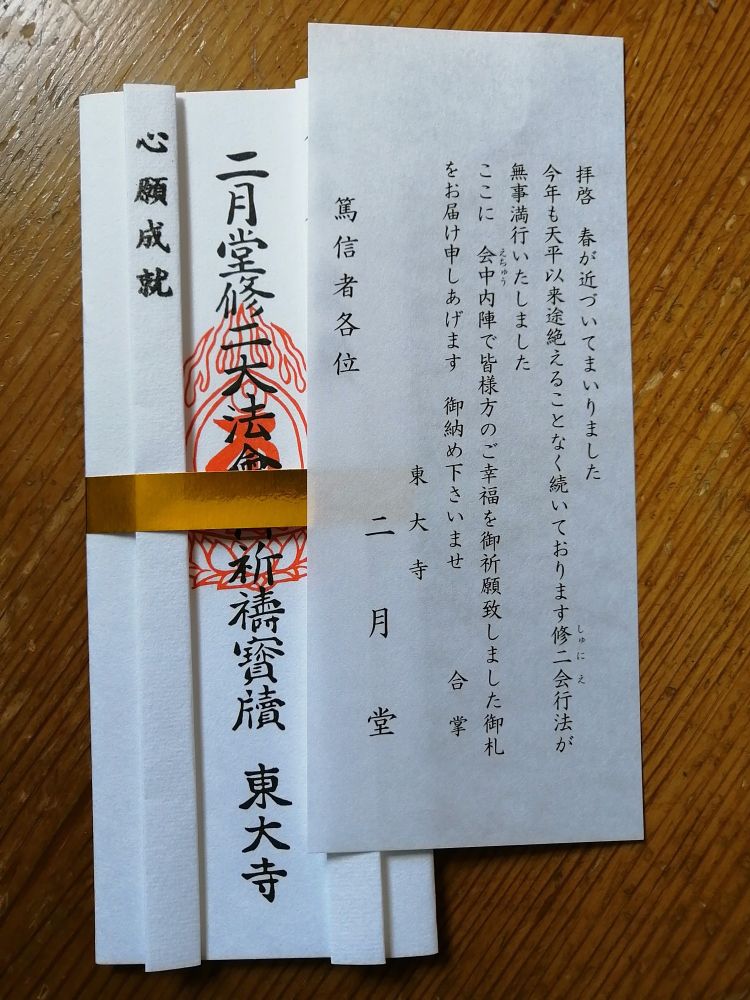 拝啓 春が近づいてまいりました
今年も天平以来途絶えることなく続いております修二会行法が
しゅにえ
無事満行いたしました
ここに 会中内陣で皆様方のご幸福を御祈願致しました御札
えちゅう
をお届け申しあげます 御納め下さいませ 合掌
東大寺
二月堂
篤信者各位
二月堂修二大法會
祈禱寳牘 東大寺
心願成就